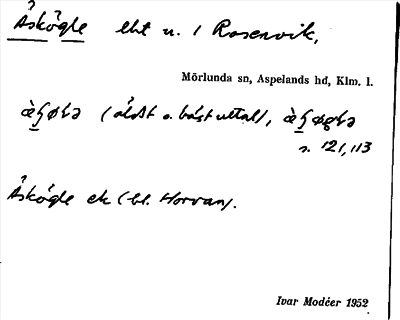 Åskögle lht u. / Rosenvik,
Mörlunda sn, Aspelands hd, Klm. l.
(äldst o. bäst uttal),
s. 121, 113
Åskögle ek (bl. Horvan).
Ivar Modéer 1952